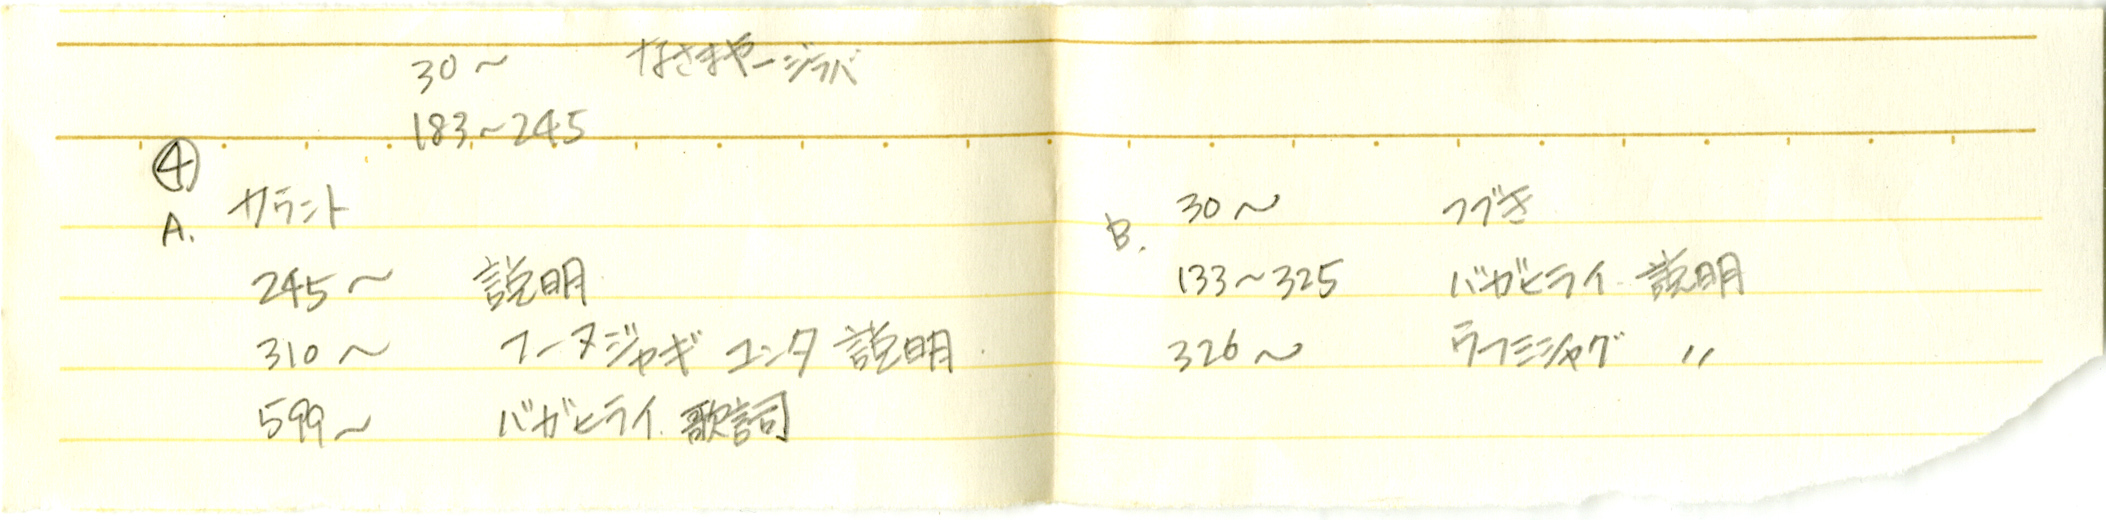 30～ なさまやージラバ
183～245
④
A. サラント
245～ 説明
310～ フーヌジャギ ユンタ 説明
599～ バガヒライ. 歌詞
B. 30～ つづき
133～325 バガヒライ. 説明
326～ 〃